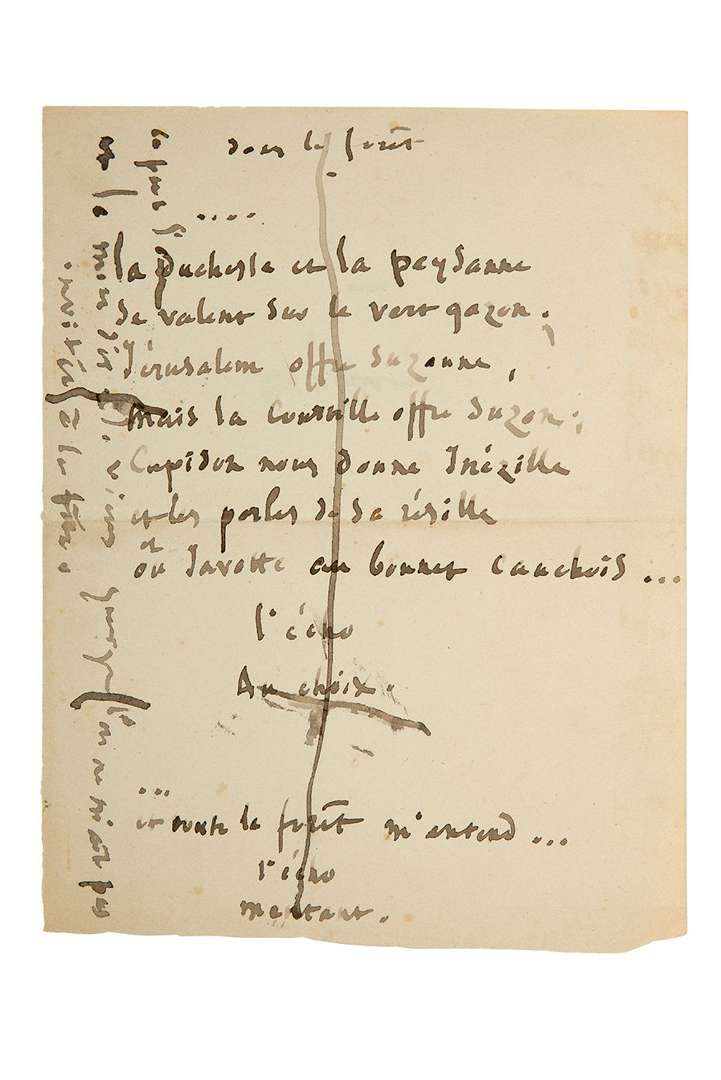 dans la forêt
....
la duchesse et la paysanne
se valent sur le vert gazon ;
Jérusalem offre Suzanne,
mais la Courtille offre Suzon ;
Cupidon nous donne Inézille
et les perles de sa résille
et
ou Javotte au bonnet cauchois ...
l'écho
Au choix.
...
et toute la forêt m'entend ...
l'écho
mentant.
et je me quoique l'on ne m'eût pas
invité à la fête.